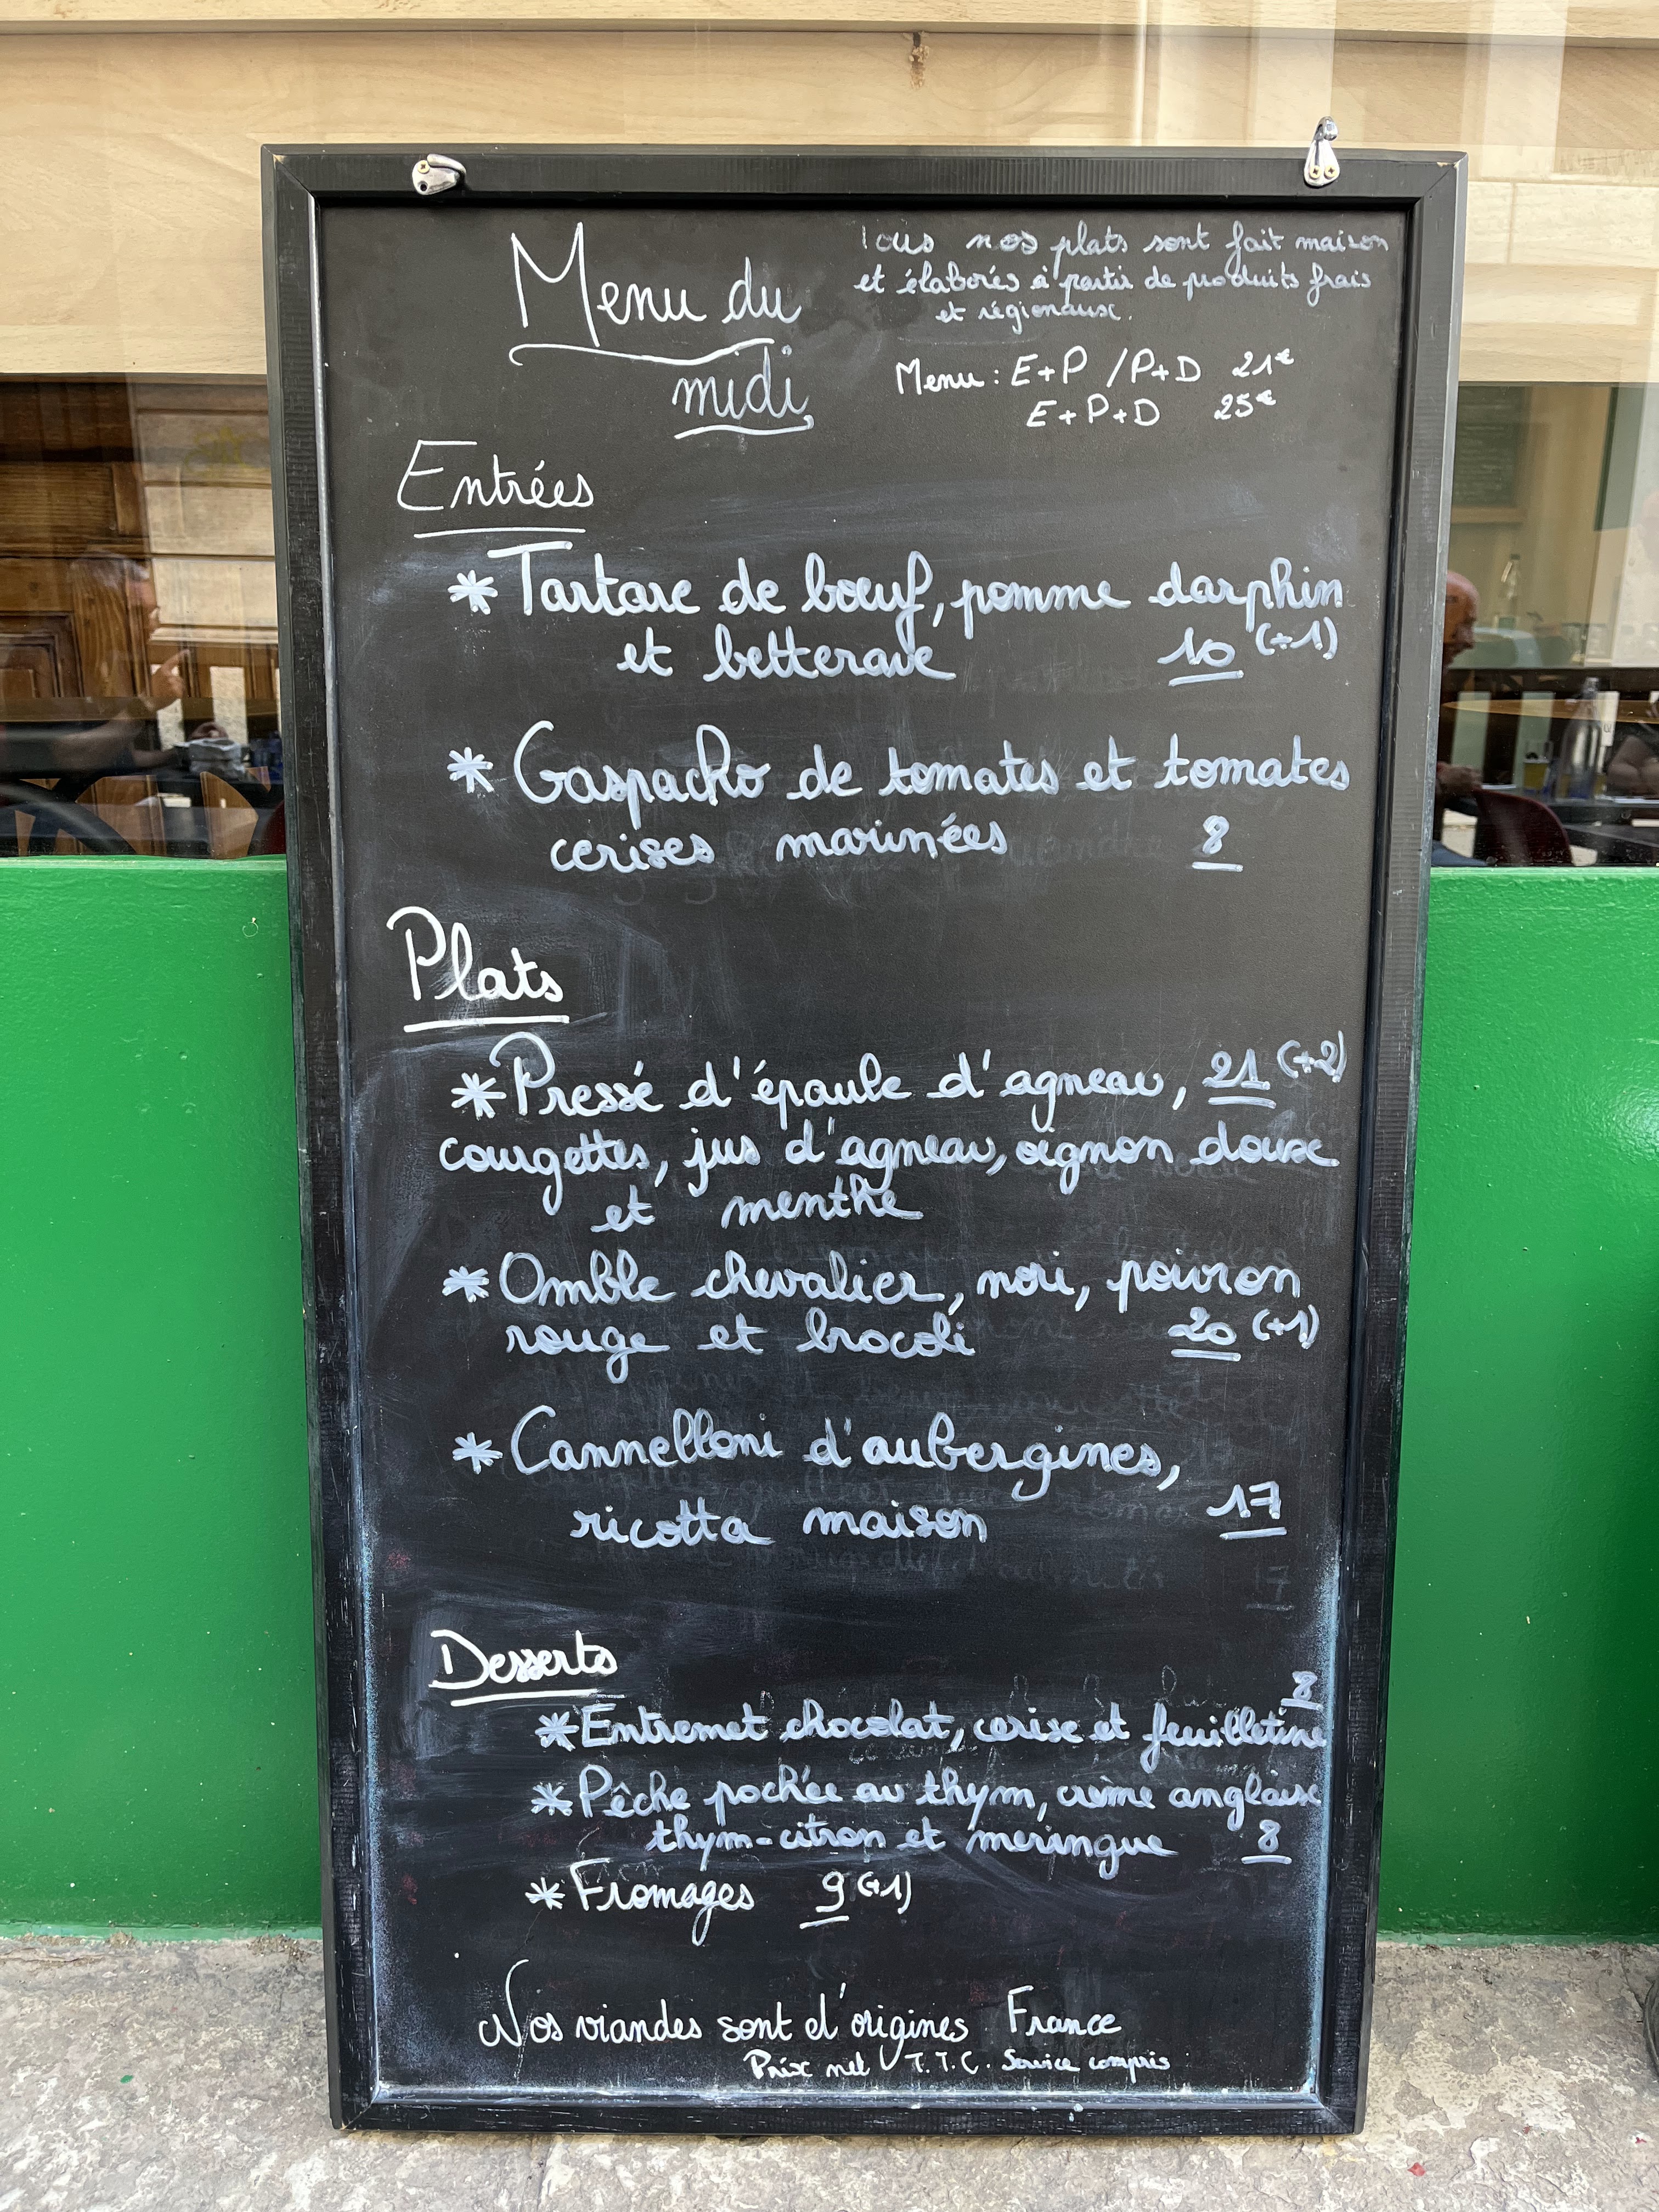 Menu du
midi
Tous nos plats sont fait maison
et élaborés à partir de produits frais
et régionaux.
Menu : E+P / P+D 21€
E+P+D 25€
Entrées
* Tartare de bœuf, pomme darphin
et betterave 10 (+1)
* Gaspacho de tomates et tomates
cerises marinées 8
Plats
* Pressé d'épaule d'agneau, 21 (+2)
courgettes, jus d'agneau, oignon doux
et menthe
* Omble chevalier, nori, poivron
rouge et brocoli 20 (+1)
* Cannelloni d'aubergines,
ricotta maison 17
Desserts
8
* Entremet chocolat, cerise et feuilletine
* Pêche pochée au thym, crème anglaise
thym-citron et meringue 8
* Fromages 9 (+1)
Nos viandes sont d'origines France
Prix net T.T.C. Service compris